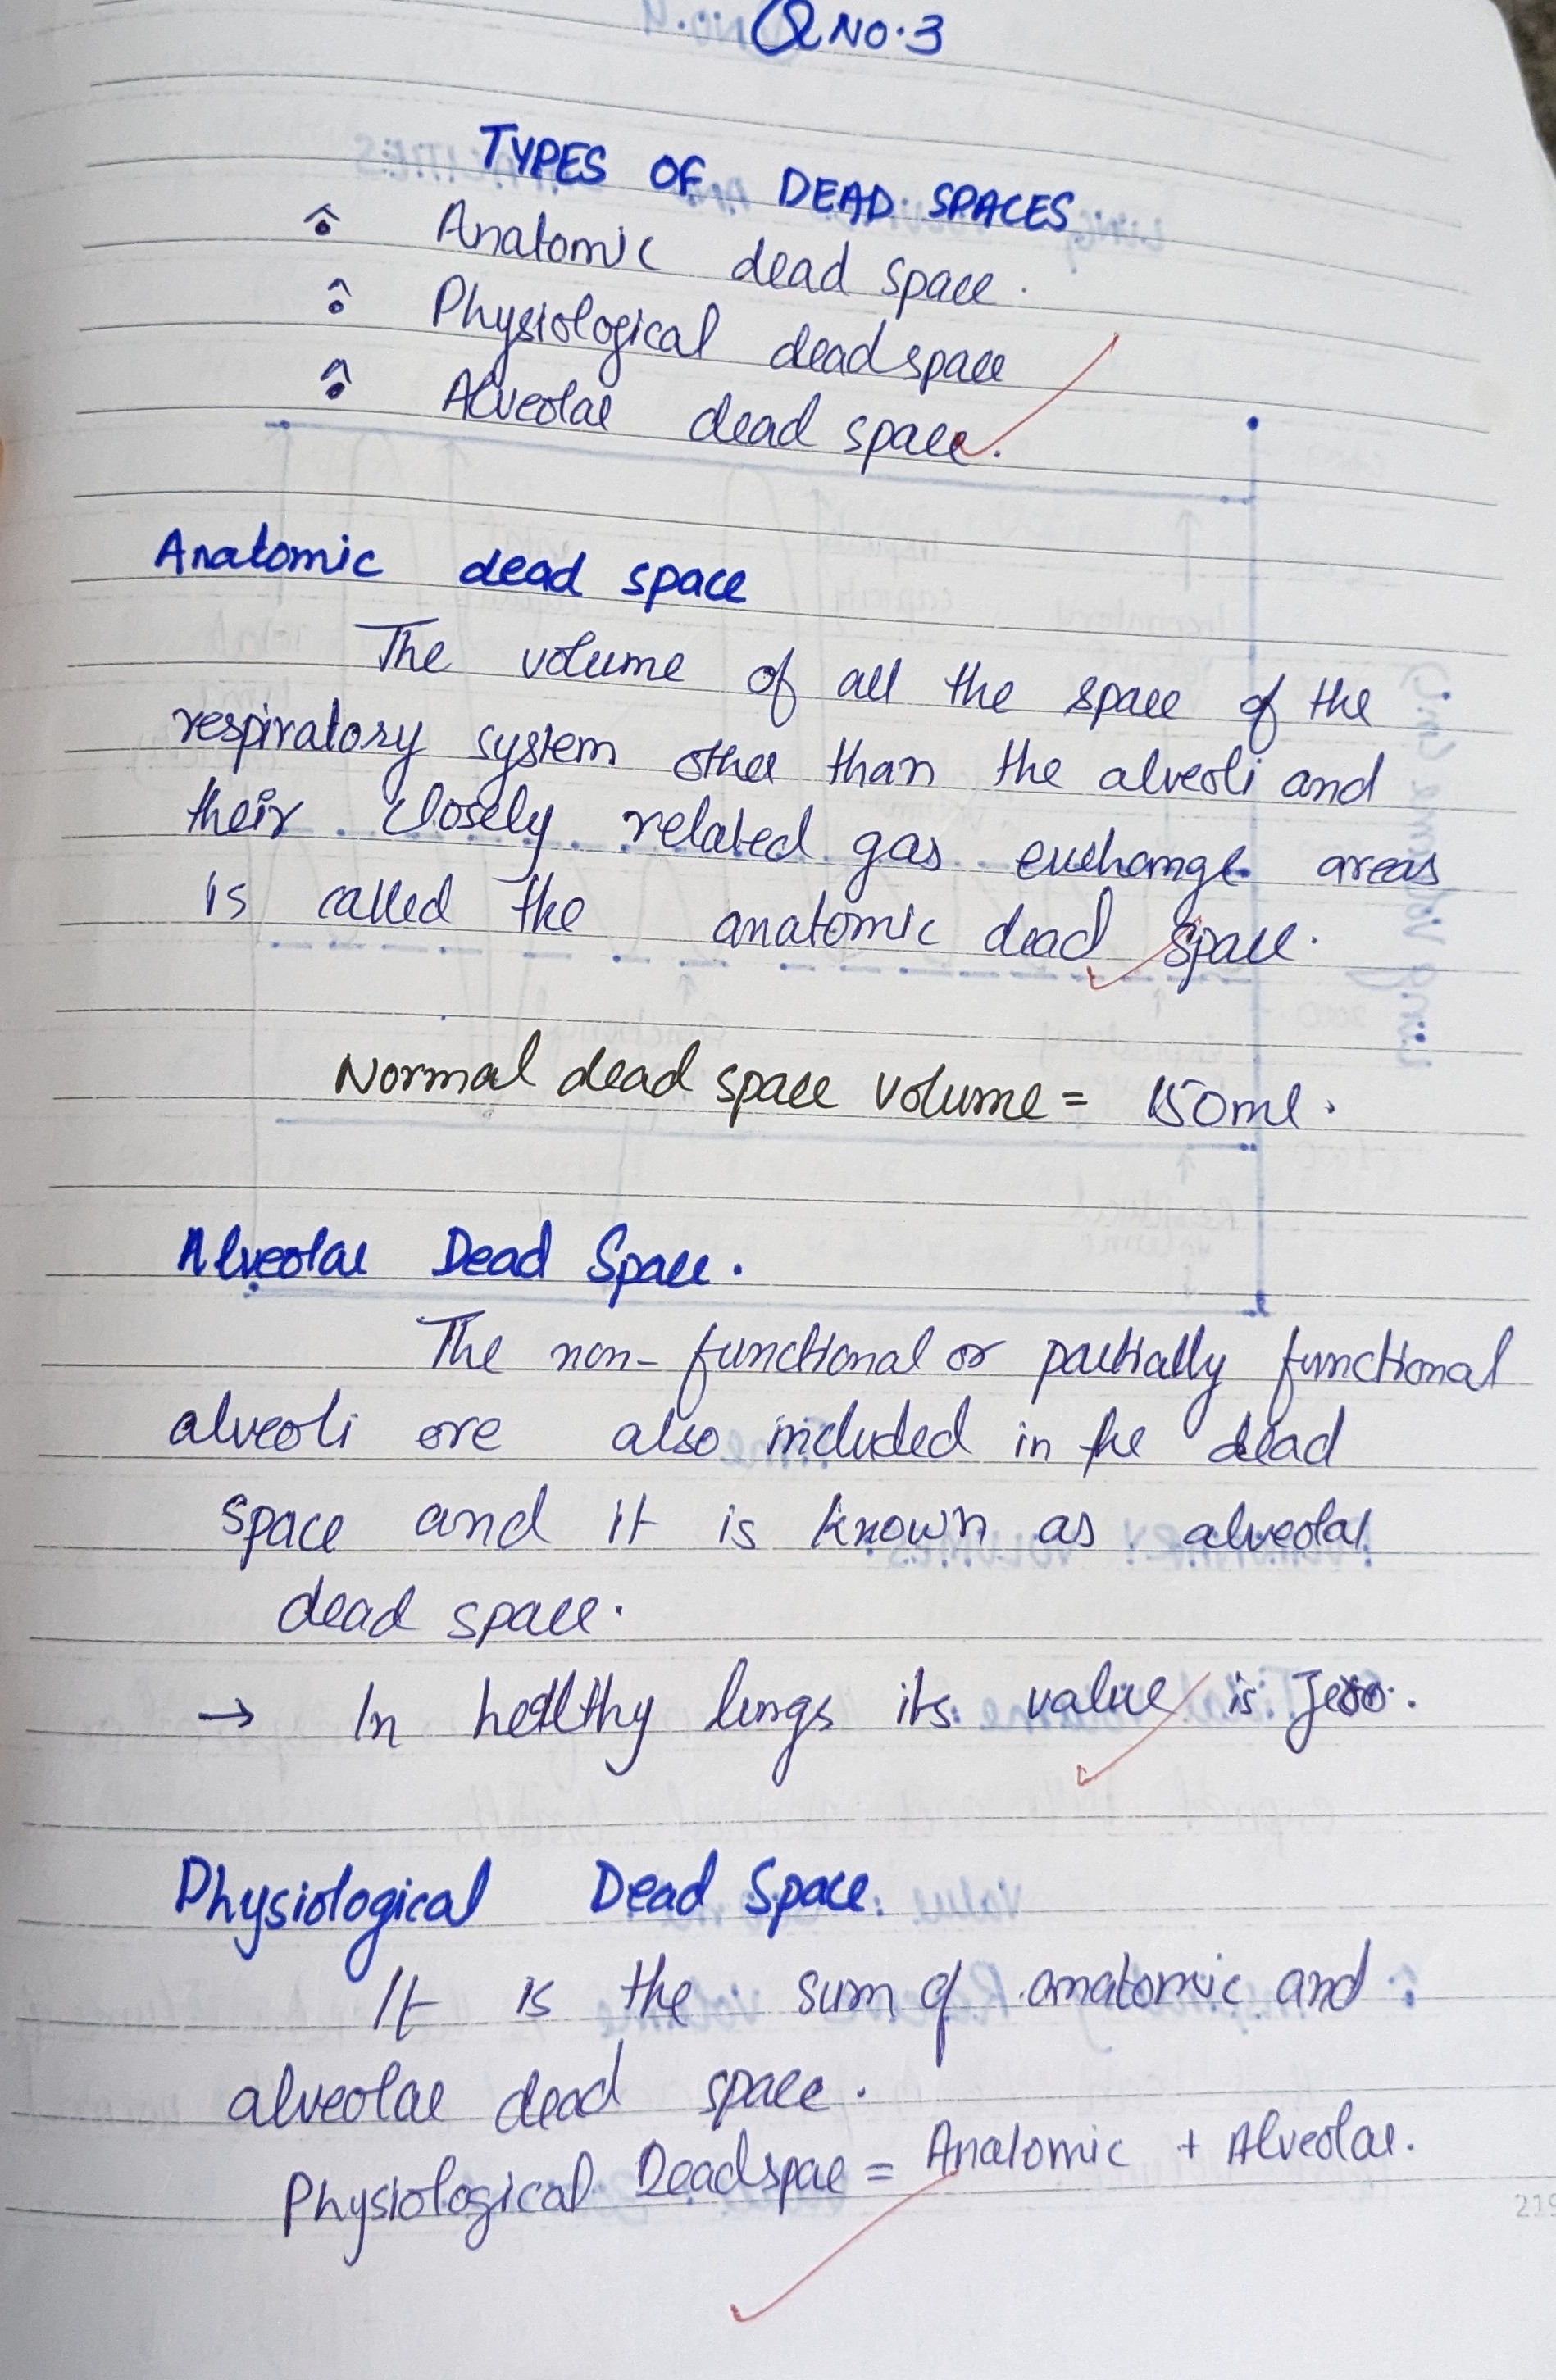 Q NO.3
TYPES OF DEAD SPACES
Anatomic dead space.
Physiological dead space
Alveolar dead space.
Anatomic dead space
The volume of all the space of the
respiratory system other than the alveoli and
their closely related gas exchange areas
is called the anatomic dead space.
Normal dead space volume = 150ml.
Alveolar Dead Space.
The non-functional or partially functional
alveoli are also included in the dead
space and it is known as alveolar
dead space.
→ In healthy lungs its value is zero.
Physiological Dead Space.
It is the sum of anatomic and
alveolar dead space.
Physiological Deadspae = Anatomic + Alveolar.
219